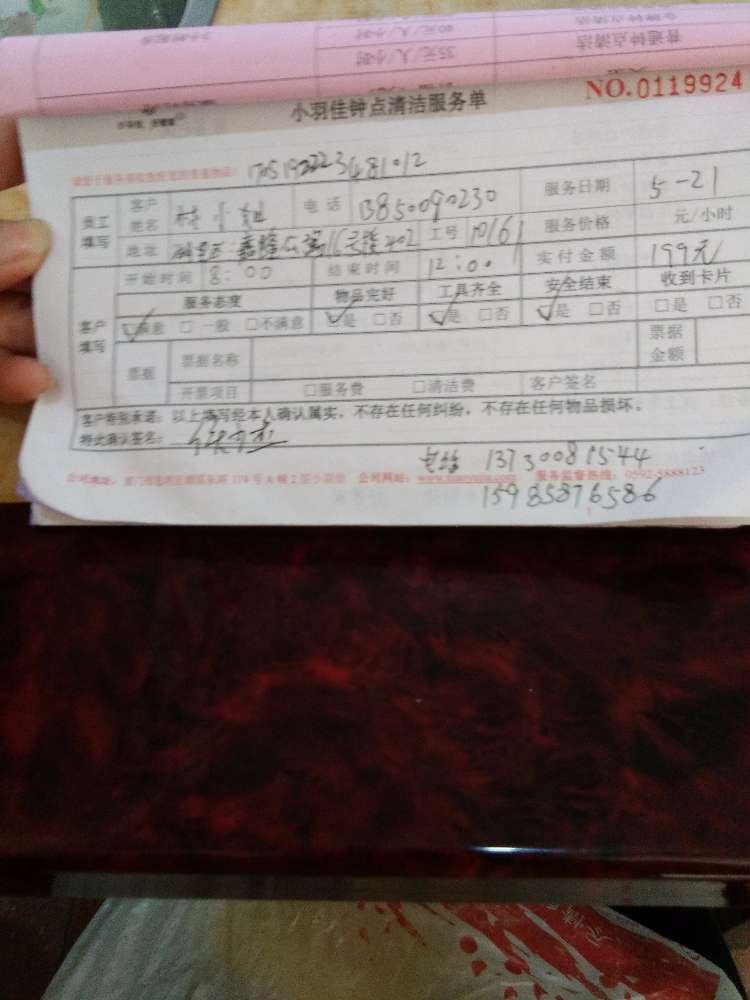 35元/人/小时 普通钟点清洁
NO.0119924
小羽佳钟点清洁服务单
17051922223481012
员工填写 客户姓名 林小姐 电话 13850090230 服务日期 5-21
地址 16号楼402 工号 10161 服务价格 元/小时
客户填写 开始时间 8:00 结束时间 12:00 实付金额 199元
服务态度 物品完好 工具齐全 安全结束 收到卡片
满意 □ 一般 □不满意 是 □否 是 □否 是 □否 □是 □否
票据 票据名称 票据金额
开票项目 □服务费 □清洁费 客户签名
客户特别承诺：以上填写经本人确认属实，不存在任何纠纷，不存在任何物品损坏。
特此确认签名：
电话 13730081544
公司地址： 公司网站： 服务监督热线：0592-5888123
15985876586